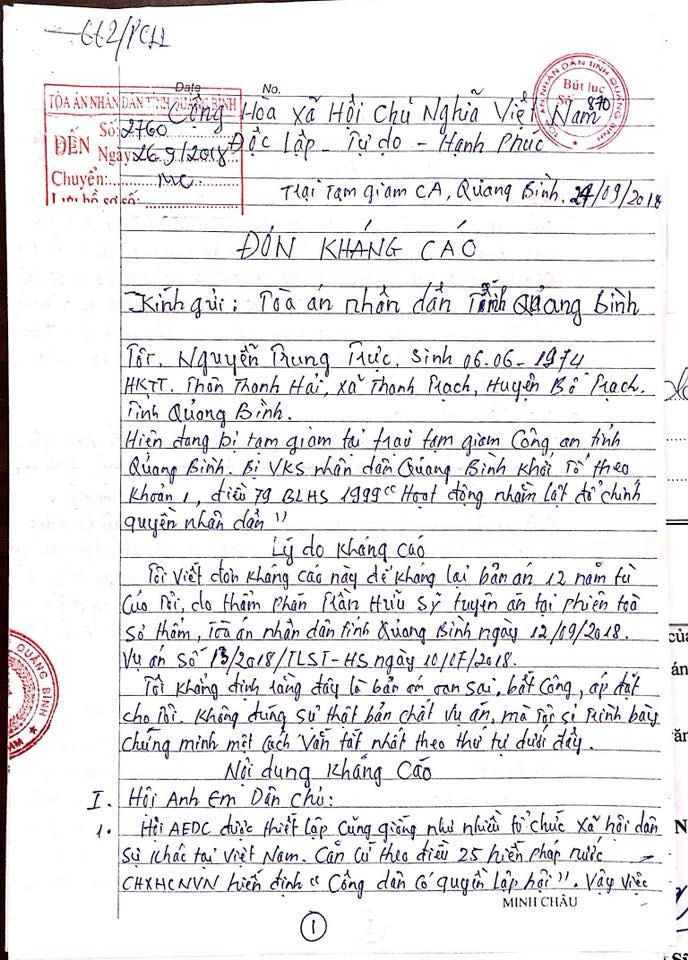 662/PC11
Date No.
TÒA ÁN NHÂN DÂN TỈNH QUẢNG BÌNH
ĐẾN Số: 2760
Ngày 26/9/2018
Chuyển: MC
Lưu hồ sơ số:
TÒA ÁN NHÂN DÂN TỈNH QUẢNG BÌNH
Bút lục
Số 870
Cộng Hòa Xã Hội Chủ Nghĩa Việt Nam
Độc Lập - Tự do - Hạnh Phúc
Trại Tạm giam CA, Quảng Bình. 24/09/2018
ĐƠN KHÁNG CÁO
Kính gửi: Tòa án nhân dân Tỉnh Quảng Bình
Tôi. Nguyễn Trung Trực. Sinh 06.06-1974
HKTT. Thôn Thanh Hải, xã Thanh Trạch, Huyện Bố Trạch.
Tỉnh Quảng Bình.
Hiện đang bị tạm giam tại trại tạm giam Công an tỉnh
Quảng Bình. Bị VKS nhân dân Quảng Bình khởi Tố theo
khoản 1, điều 79 BLHS 1999 "Hoạt động nhằm lật đổ chính
quyền nhân dân"
Lý do kháng cáo
Tôi viết đơn kháng cáo này để kháng lại bản án 12 năm tù
của Tôi, do thẩm phán Trần Hữu Sỹ tuyên án tại phiên toà
sơ thẩm, Tòa án nhân dân tỉnh Quảng Bình ngày 12/09/2018.
Vụ án Số 13/2018/TLST-HS ngày 10/07/2018.
Tôi khẳng định rằng đây là bản án oan sai, bất Công, áp đặt
cho Tôi. Không đúng sự thật bản chất vụ án, mà Tôi sẽ Trình bày
chứng minh một cách vắn tắt nhất theo thứ tự dưới đây.
Nội dung Kháng Cáo
I. Hội Anh Em Dân Chủ:
1. Hội AEDC được thiết lập Cũng giống như nhiều tổ chức xã hội dân
sự khác tại Việt Nam. Căn Cứ theo điều 25 hiến pháp nước
CHXHCNVN hiến định "Công dân có quyền lập hội". Vậy việc
MINH CHÂU
1
QUẢNG BÌNH